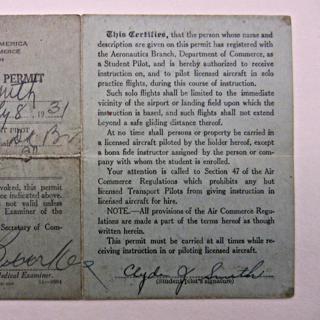 MERICA
MERCE
PERMIT
Smith
8 1931
T PILOT
voked, this permit
e indicated above.
not valid unless
Examiner of the
Secretary of Com-
Medical Examiner.
This Certifies, that the person whose name and
description are given on this permit has registered with
the Aeronautics Branch, Department of Commerce, as
a Student Pilot, and is hereby authorized to receive
instruction on, and to pilot licensed aircraft in solo
practice flights, during this course of instruction.
Such solo flights shall be limited to the immediate
vicinity of the airport or landing field upon which the
instruction is based, and such flights shall not extend
beyond a safe gliding distance thereof.
At no time shall persons or property be carried in
a licensed aircraft piloted by the holder hereof, except
a bona fide instructor assigned by the person or com-
pany with whom the student is enrolled.
Your attention is called to Section 47 of the Air
Commerce Regulations which prohibits any but
licensed Transport Pilots from giving instruction in
licensed aircraft for hire.
NOTE.—All provisions of the Air Commerce Regu-
lations are made a part of the terms hereof as though
written herein.
This permit must be carried at all times while re-
ceiving instruction in or piloting licensed aircraft.
Clyde J. Smith
(Student pilot's signature)